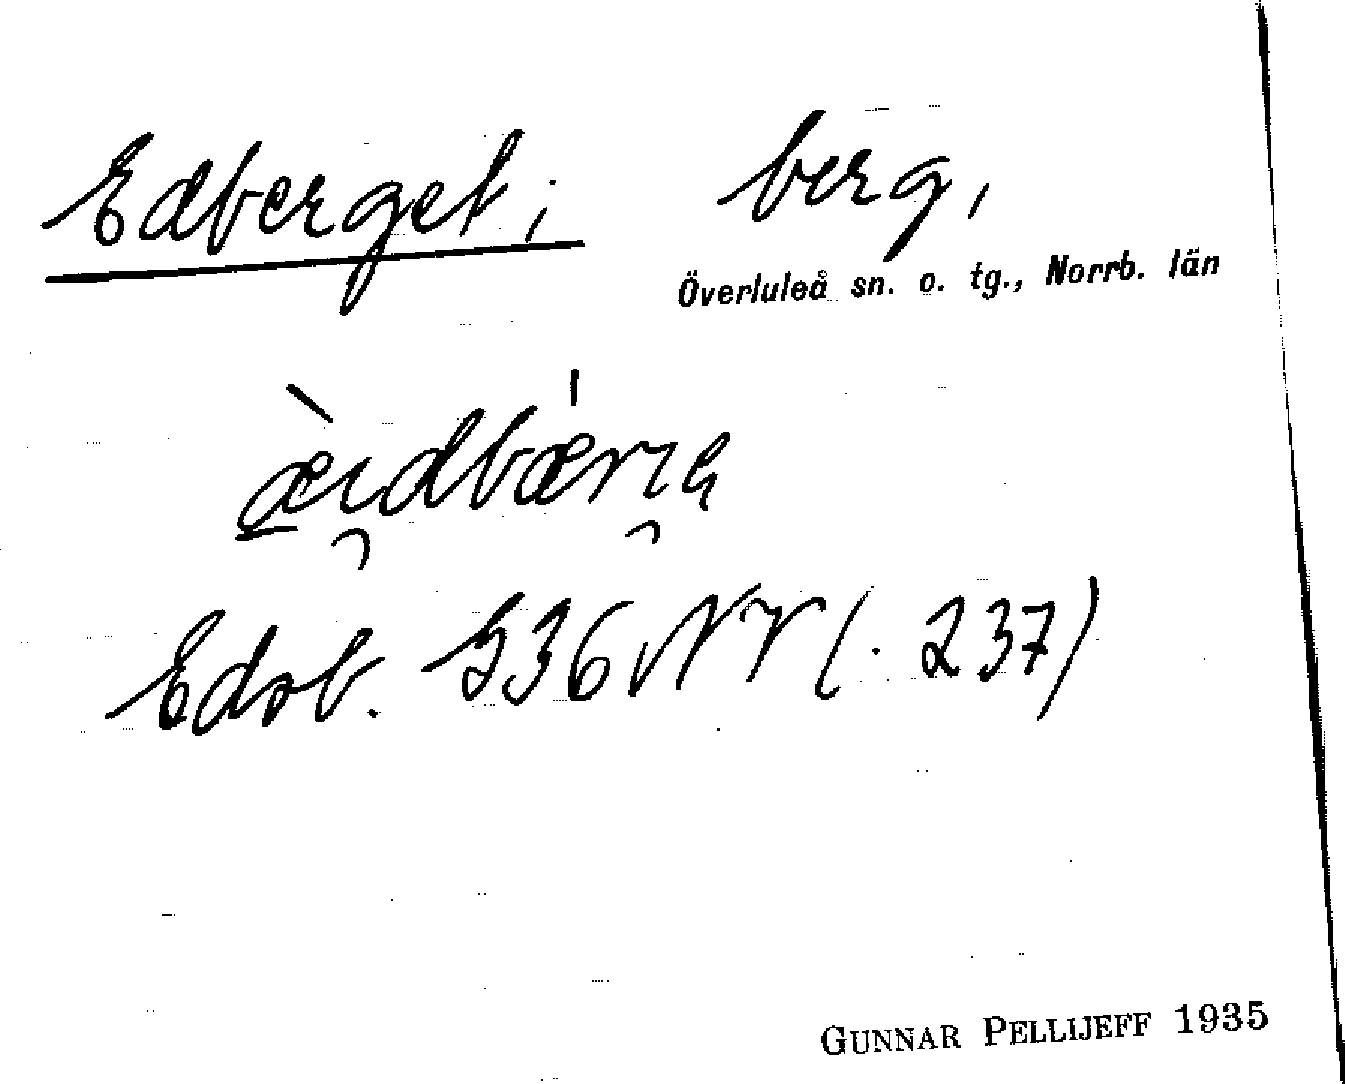 Edberget; berg,
Överluleå sn. o. tg., Norrb. län
Edsb. 536 NV (. 237)
GUNNAR PELLIJEFF 1935